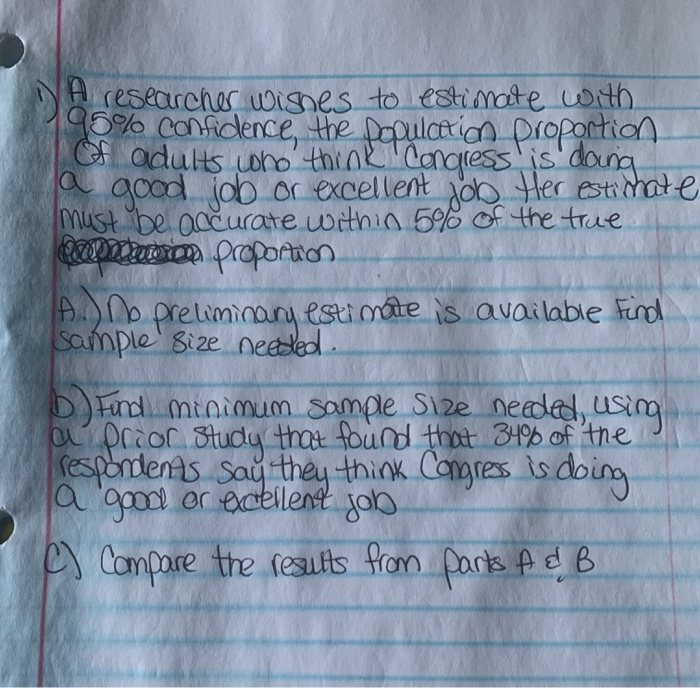 1) A researcher wishes to estimate with
95% confidence, the population proportion
Of adults who think Congress is doing
a good job or excellent job Her estimate
must be accurate within 5% of the true
proportion
A.) No preliminary estimate is available Find
sample size needed.
b) Find minimum sample size needed, using
a prior study that found that 34% of the
respondents say they think Congress is doing
a good or excellent job
C) Compare the results from parts A & B